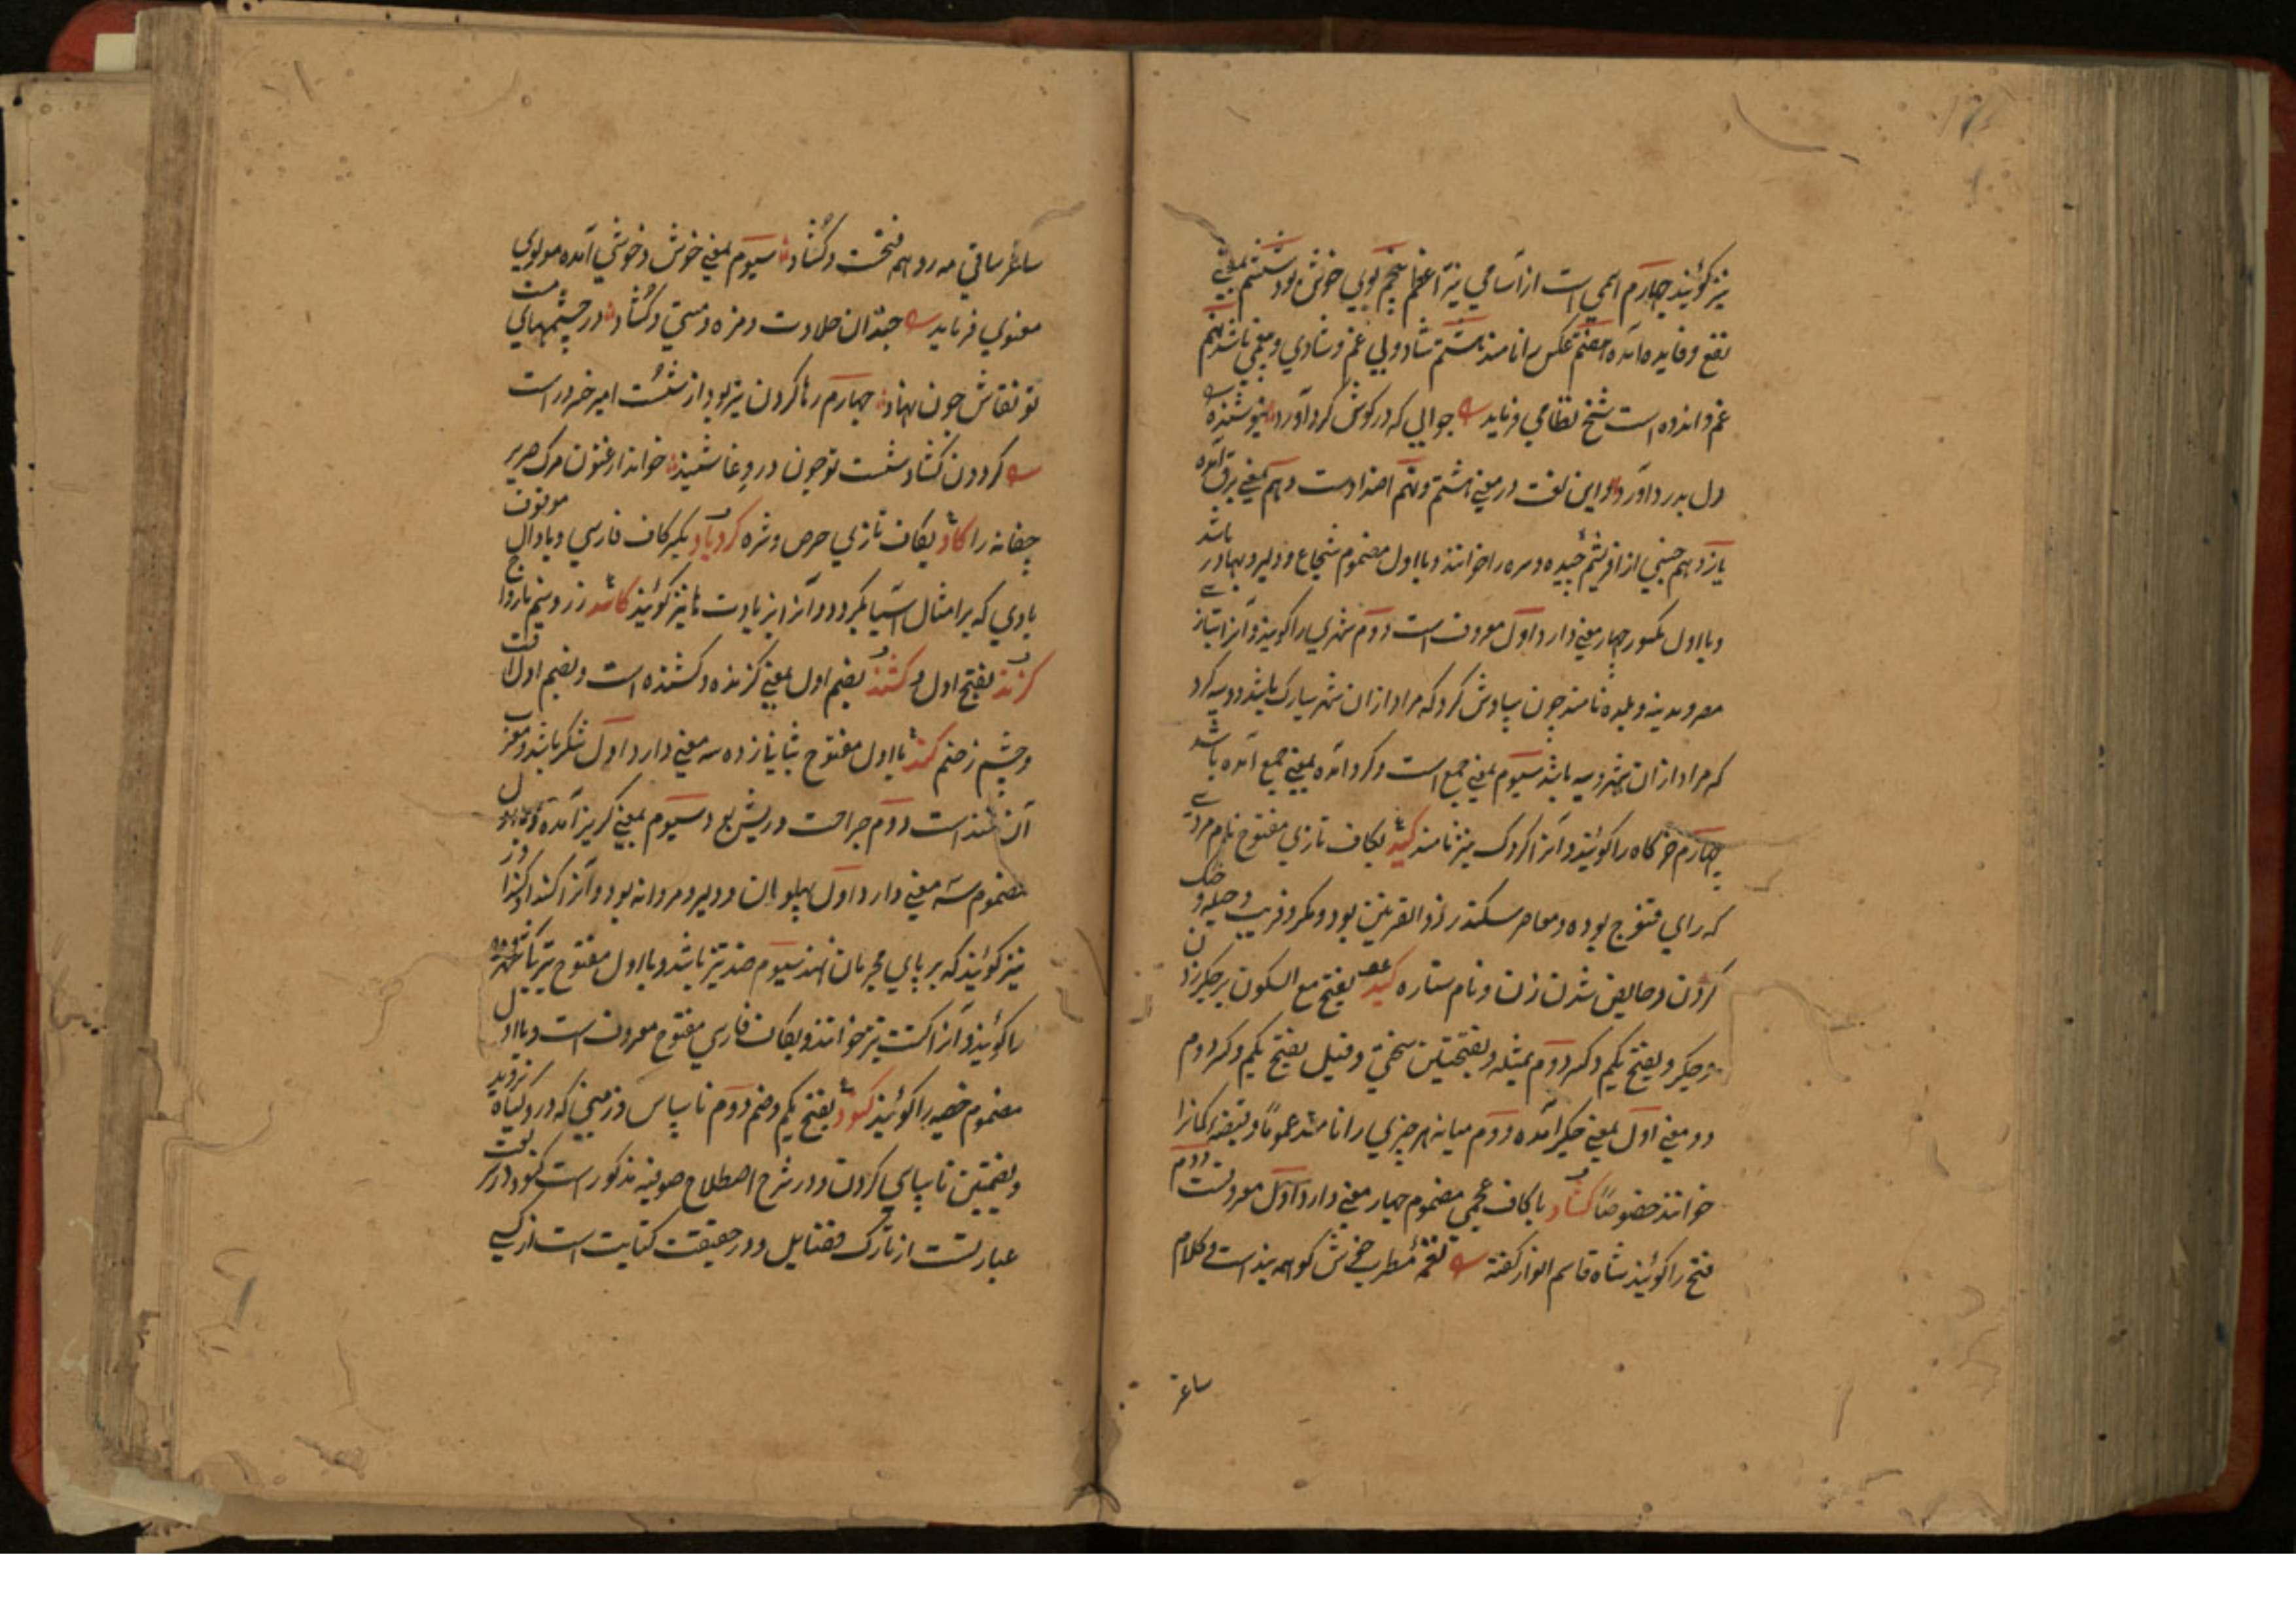 نیز گویند چهارم اسمی است از آسامی نیر اعظم پنجم بوی خوش بود ششم بمعنی
نفع و فایده آمده هفتم عکس را نامند هشتم شاد و بی غم و شادی و بیغمی باشد نهم
غم و اندوه است شیخ نظامی فرماید جوابی که در گوش گرد آورد نیوشنده
دل بدرد آورد و این لغت در معنی هشتم و نهم اضداد است دهم بمعنی برق آمده
یازدهم جنسی از ابریشم چیده و سره را خوانند و با اول مضموم شجاع و دلیر و بهادر باشد
و با اول مکسور چهار معنی دارد اول معروف است دوم شهری را گویند و آنرا بتازی
مصر و مدینه و بلده نامند چون سیاوش گرد که مراد از ان شهر سیارک باشد و ویه گرد
که مراد از ان شهر ویه باشد سیوم بمعنی جمع است و گرد آمده بمعنی جمع آمده باشد
چهارم خرگاه را گویند و آنرا گردک نیز نامند کید بکاف تازی مفتوح نام مردی
که رای قنوج بوده و معاصر سکندر ذوالقرنین بود و مکر و فریب و حیله و جنگ
کردن و حایض شدن زنان و نام ستاره کبد بفتح مع السکون بر جگر زدن
و جگر و بفتح یکم و کسر دوم بمثله و بفتحتین سختی و قیل بفتح یکم و کسر دوم
دو معنی اول بمعنی جگر آمده دوم میانه هر چیزی را نامند عموما و قبضه کمانرا
خوانند خصوصا گشاد با کاف عجمی مضموم چهار معنی دارد اول معروفست دوم
فتح را گویند شاه قاسم انوار گفته نغمه مطرب خوش گو همه بندست و کلام
ساغر
ساغر ساقی مه رو همه فتحست و گشاد سیوم بمعنی خوش و خوشی آمده مولوی
معنوی فرماید چندان حلاوت و مزه و مستی و گشاد در چشمهای مست
تو نقاش چون نهاد چهارم رها کردن تیر بود از شست امیر خسرو راست
گردون گشاد شست تو چون در وغا شنید خواند ارغنون مرگ صریر
چغانه را کاد بکاف تازی حرص و شره گردباد بکسر کاف فارسی و با دال موقوف
بادی که بر امثال آسیا بگردد و آنرا بزبادت ها نیز گویند کاسد زر و سیم ناروا
گزند بفتح اول و کشند بضم اول بمعنی گزنده و کشنده است و بضم اول آفت
و چشم زخم کند با اول مفتوح بثانی زده سه معنی دارد اول شکر باشد و معرب
آن قند است دوم جراحت و ریش بع و سیوم بمعنی گریز آمده و با اول
مضموم سه معنی دارد اول پهلوان و دلیر و مردانه بود و آنرا کندا و کندر
نیز گویند که بر پای مجرمان نهند سیوم ضد تیز باشد و با اول مفتوح بترکی شهر
را گویند و آنرا کنت نیز خوانند و بکاف فارسی مفتوح معروف است و با اول
مضموم خصیه را گویند کنود بفتح یکم و ضم دوم ناسپاس و زمینی که درو گیاه نروید
و بضمتین ناسپاسی کردن و در شرح اصطلاح صوفیه مذکور است کنود در شریعت
عبارتست از تارک فضایل و در حقیقت کنایت است از کسی